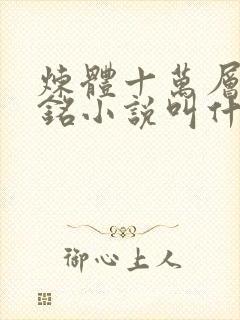 煉體十萬層
銘小說叫什
御心上人